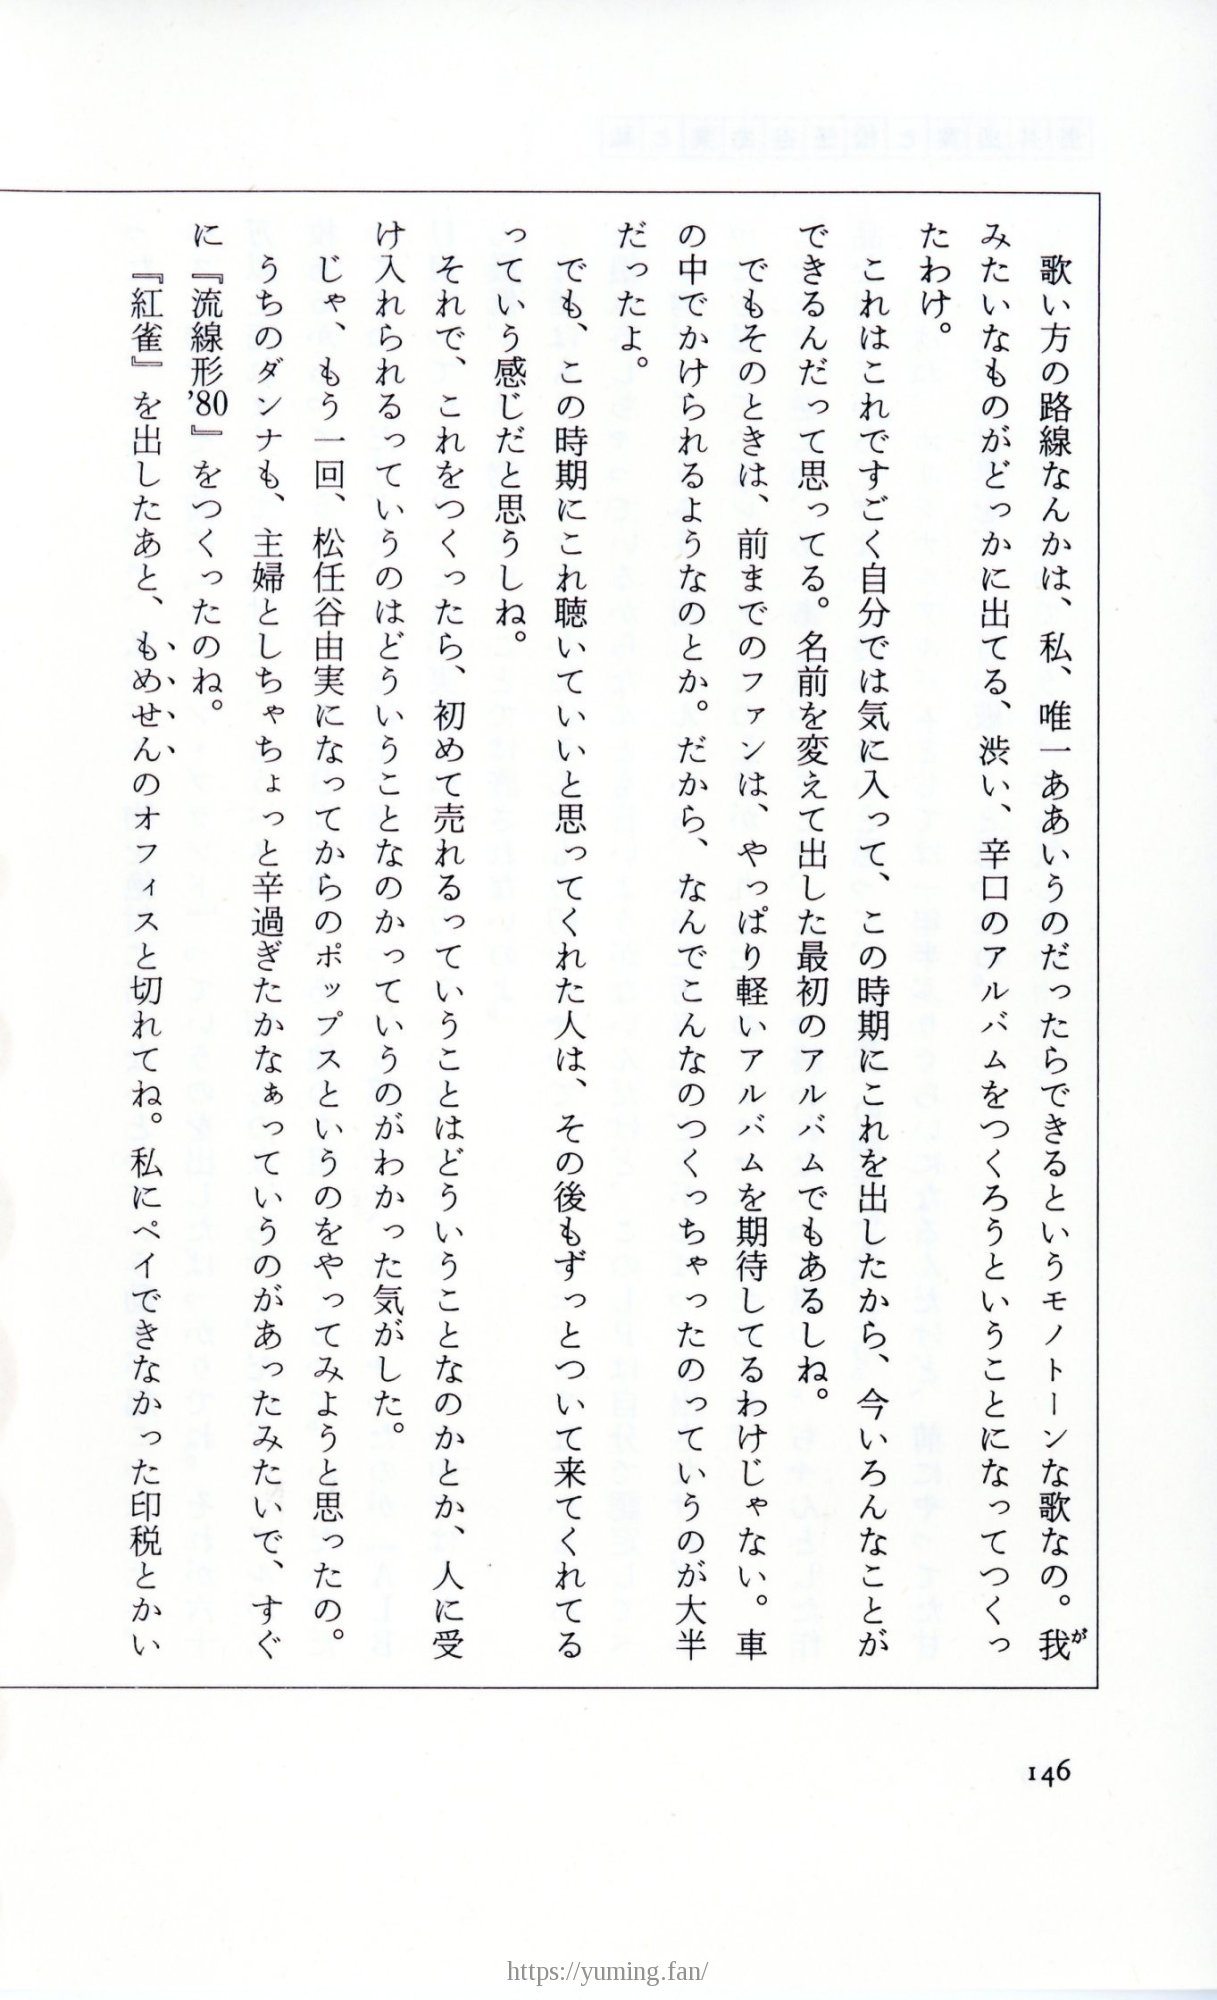 歌い方の路線なんかは、私、唯一ああいうのだったらできるというモノトーンな歌なの。我
が
みたいなものがどっかに出てる、渋い、辛口のアルバムをつくろうということになってつくっ
たわけ。
これはこれですごく自分では気に入って、この時期にこれを出したから、今いろんなことが
できるんだって思ってる。名前を変えて出した最初のアルバムでもあるしね。
でもそのときは、前までのファンは、やっぱり軽いアルバムを期待してるわけじゃない。車
の中でかけられるようなのとか。だから、なんでこんなのつくっちゃったのっていうのが大半
だったよ。
でも、この時期にこれ聴いていいと思ってくれた人は、その後もずっとついて来てくれてる
っていう感じだと思うしね。
それで、これをつくったら、初めて売れるっていうことはどういうことなのかとか、人に受
け入れられるっていうのはどういうことなのかっていうのがわかった気がした。
じゃ、もう一回、松任谷由実になってからのポップスというのをやってみようと思ったの。
うちのダンナも、主婦としちゃちょっと辛過ぎたかなぁっていうのがあったみたいで、すぐ
に『流線形’80』をつくったのね。
『紅雀』を出したあと、もめせんのオフィスと切れてね。私にペイできなかった印税とかい
146
https://yuming.fan/